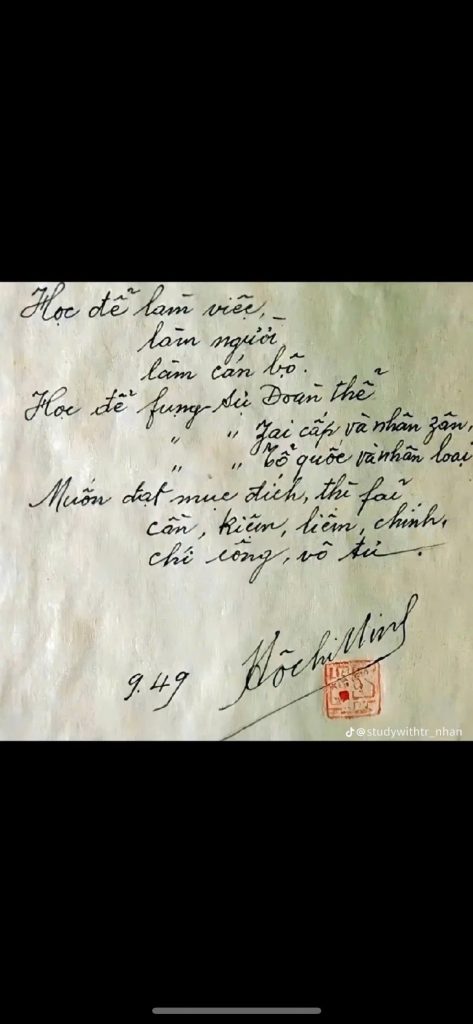 Học để làm việc,
làm người
làm cán bộ.
Học để fụng-sự Đoàn thể
" " Zai cấp và nhân zân,
" " Tổ quốc và nhân loại
Muốn đạt mục đích, thì fải
cần, kiệm, liêm, chính,
chí công, vô tư.
9.49 Hồ Chí Minh
@studywithtr_nhan